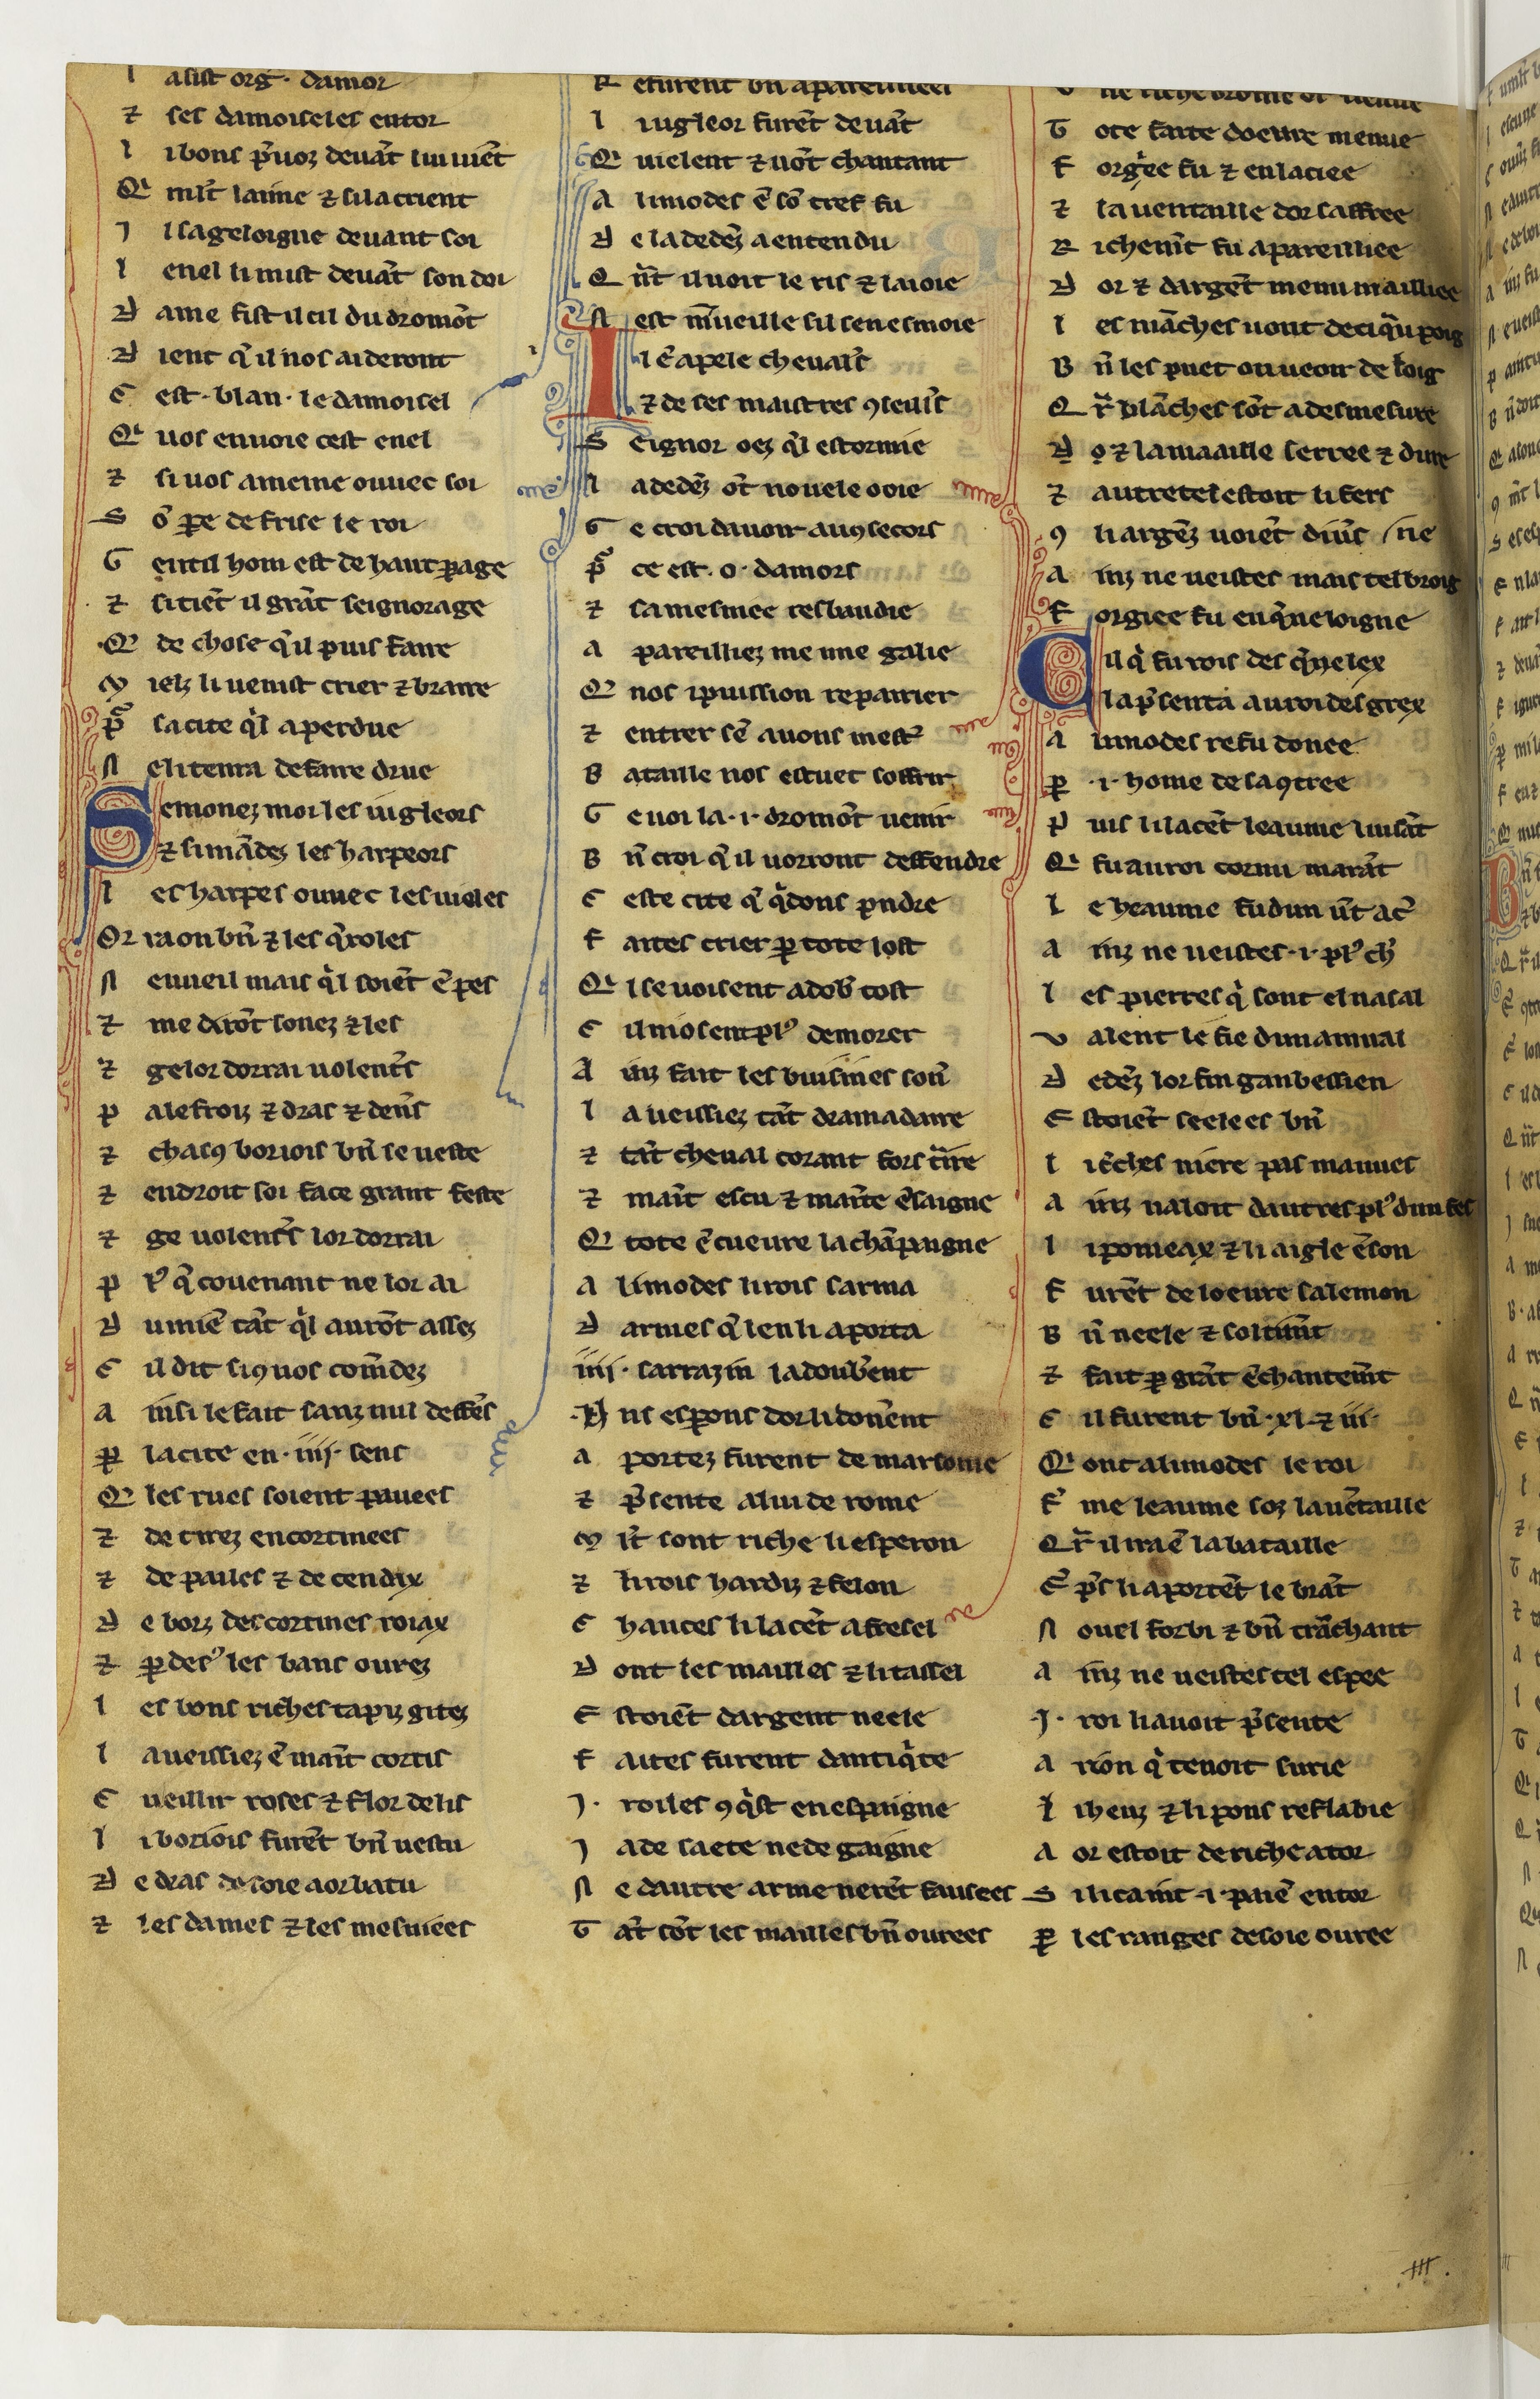 l asist org · damor
⁊ ses damoiseles entor
l i bons p̃uoz deuãt lui uiẽt
Q ml̃t laime ⁊ si lacrient
J l sageloigne deuant soi
l enel li mist deuãt son doi
D ame fist il cil du dromõt
D ient q̃ il nos aideront
C est · blan · le damoisel
Q uos enuoie cest enel
⁊ si uos ameine ouuec soi
S õ ꝑe de frise le roi
G entil hom est de haut ꝑage
⁊ si tiẽt il grãt seignorage
Q de chose q̃ il puis faire
M ielz li uenist crier ⁊ braire
P̃ sa cite q̃l a perdue
N e li tenra de faire drue
S emonez moi les iugleors
⁊ si mãdez les harpeors
l es harpes ouuec les uieles
Or raon bñ ⁊ les q̃roles
N en ueil mais q̃l soiẽt ẽ pes
⁊ me dirõt sonez ⁊ les
⁊ ge lor dorrai uolent̃s
P alefroiz ⁊ dras ⁊ den̄s
⁊ chasꝯ boriois bñ se ueste
⁊ endroit soi face grant feste
⁊ ge uolent̃s lor dorrai
P r̉ q̃ couenant ne lor ai
D u miẽ tãt q̃l aurõt assez
C il dit si ꝯ uos com̃dez
A insi le fait sanz nul deffẽs
ꝑ la cite en · iiii · sens
Q les rues soient pauees
⁊ de tirez encortinees
⁊ de pailes ⁊ de cendix
D e borz des cortines roiax
⁊ ꝑ des̉ les bans ourez
l es bons riches tapiz gitez
l a ueissiez ẽ maĩt cortis
C ueillir roses ⁊ flor de lis
l i boriois furẽt bñ uestu
D e dras de soie a or batu
⁊ les dames ⁊ les mesniees
R efurent bñ apareilliees
l i iugleor furẽt deuãt
Q uielent ⁊ uõt chantant
A limodes ẽ sõ tref fu
D e la dedẽz a entendu
Q ñt il uoit le ris ⁊ la ioie
N est m̃ueille sil sen esmoie
I l ẽ apele cheual̃s
⁊ de ses maistres ꝯseull̃s
S eignor oez q̃l estormie
N a dedẽz õt nouele ooie
G e croi dauoir auꝯ secors
P̃ ce est · o · damors
⁊ sa mesniee resbaudie
A pareilliez me une galie
Q nos i puission repairier
⁊ entrer sẽ auons mest̉
B ataille nos estuet soffrir
G e uoi la · i · dromõt uenir
B ñ croi q̃ il uorront deffendre
C este cite q̃ q̃dons pndre
F aites crier ꝑ tote lost
Q l se uoisent adob̃ tost
C il ni osent pl̉ demorer
A inz fait les buisines soñ
l a ueissiez tãt dramadaire
⁊ tãt cheual corant fors t̃ire
⁊ maĩt escu ⁊ maĩte ẽsaigne
Q tote ẽ cueure la chãpaigne
A limodes li rois sarma
D armes q̃ len li aporta
iiii · sarrazin ladoub̃ent
· V̉ ns esꝑons dor li don̄ent
A portez furent de marsonie
⁊ p̃sente a lui de rome
M l̃t sont riche li esperon
⁊ li rois hardiz ⁊ felon
C hauces li lacẽt a fresel
D ont les mailles ⁊ li tassel
E stoiẽt dargent neele
F aites furent dantiq̃te
J · roi les ꝯq̃st en espaigne
J a de saete ne de gaigne
N e dautre arme nerẽt fausees
T ãt sõt les mailles bñ ourees
T ote faite doeure menue
F orgẽe fu ⁊ enlaciee
⁊ la uentaille dor saffree
R ichem̃t fu apareilliee
D or ⁊ dargẽt menu mailliee
l es mãches uont deci q̃u poig
B ñ les puet on ueoir de loig
Q r̃ blãches sõt a desmesure
D o ⁊ la maaille serree ⁊ dure
⁊ autretel estoit li fers
ꝯ li argẽz uoiẽt diũs
A inz ne ueistes mais tel broig ne
F orgiee fu en q̃neloigne
C il q̃ fu rois des q̃nelex
l a p̃senta au roi des grex
A limodes refu donee
ꝑ · i · home de sa ꝯtree
P uis li lacẽt leaume luisãt
Q fu au roi cornu marãt
l e heaume fu dun ũt ac̃
A inz ne ueistes · i · pl̉ ch̉
l es pierres q̃ sont el nasal
V alent le fie dun amiral
D edẽz lor fin ganbessien
E stoiẽt seelees bñ
l i cẽches niere pas mauues
A inz ualoit dautres pl̉ dun fes
l i pomeax ⁊ li aigle ẽson
F urẽt de loeure salemon
B ñ neele ⁊ soltium̃t
⁊ fait ꝑ grãt ẽchantem̃t
C il furent bñ · xl · ⁊ iii ·
Q ont alimodes le roi
F̉ me leaume soz la uẽtaille
Q r̃ il ira ẽ la bataille
E p̃s li aportẽt le brãt
N ouel forbi ⁊ bñ trãchant
A inz ne ueistes tel espee
· J · roi li auoit p̃sente
A rion q̃ tenoit surie
l i heuz ⁊ li pons reflabie
A or estoit de riche ator
S i li caint · i · paiẽ entor
ꝑ les ranges de soie ouree